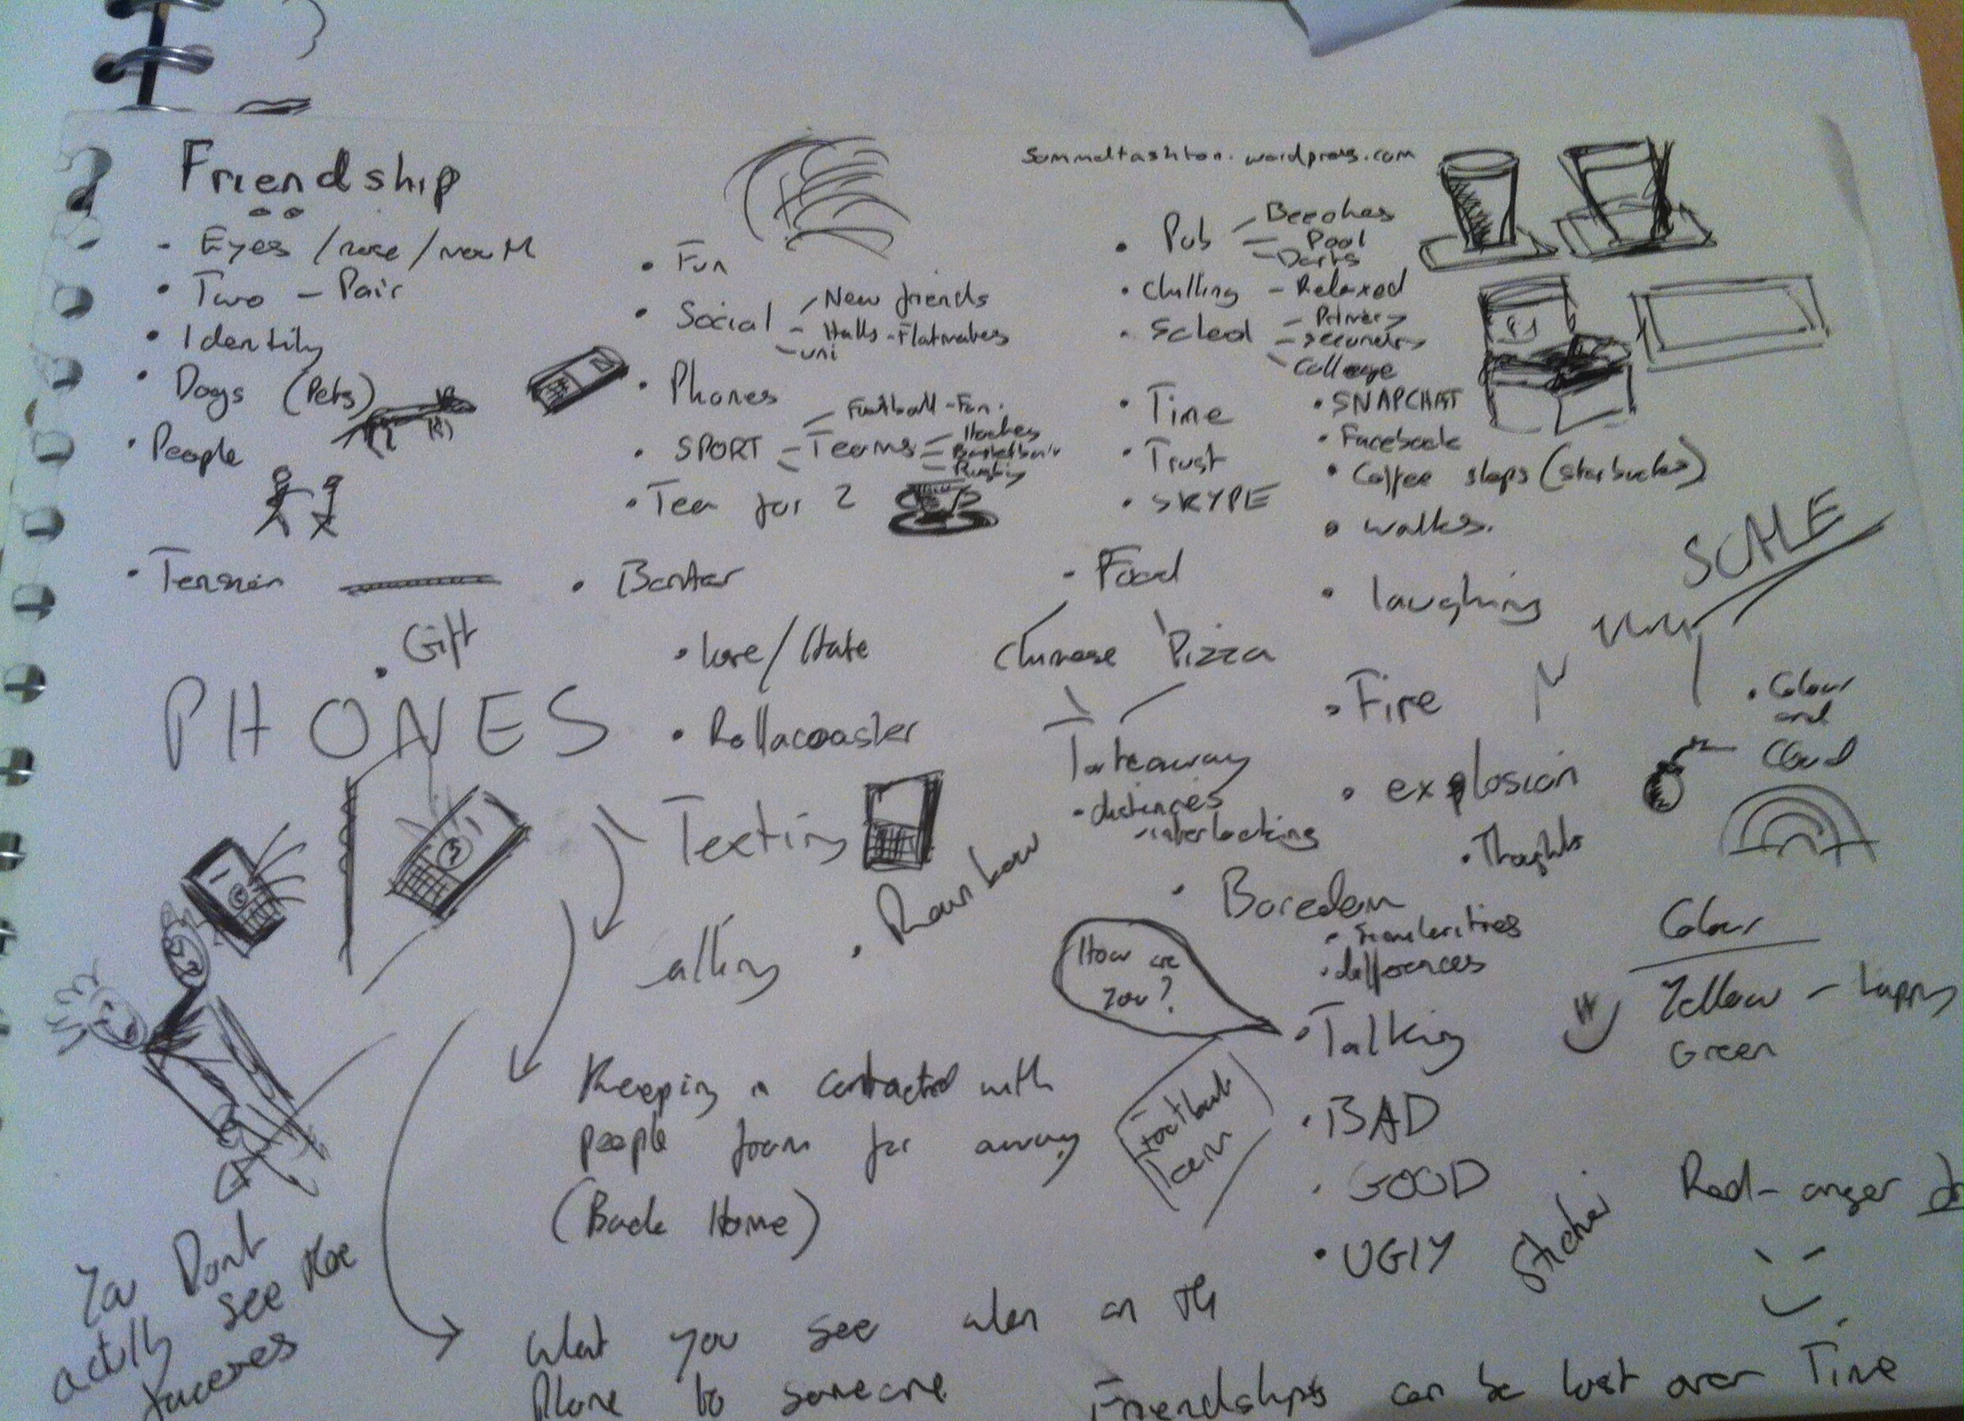 Friendship
• Eyes / nose / mouth
• Two - Pair
• Identity
• Dogs (Pets)
• People
• Tension
• Gift
PHONES
• Fun
• Social - New friends
- Halls - Flatmates
- uni
• Phones
• SPORT - Teams
Football - Fun.
Hockey
Basketball
Rugby
• Tea for 2
• Banter
• Love / Hate
• Rollacoaster
Texting
alking
• Rainbow
sammaltashton.wordpress.com
• Pub - Beeches
- Pool
- Darts
• Chilling - Relaxed
• School - Primary
- Secondry
- College
• Time
• Trust
• SKYPE
• SNAPCHAT
• Facebook
• Coffee shops (starbucks)
• walks.
• Food
Chinese Pizza
Takeaway
• distances
• interlocking
• laughing
• Fire
• explosion
• Thoughts
• Boredom
• Similarities
• differences
How are
you?
• Talking
• BAD
• GOOD
• UGLY
SCALE
• Colour
and
Cloud
Colour
Yellow - happy
Green
Red - anger
Sticker
Football
team
Keeping in contacted with
people from far away
(Back Home)
You Dont
actully see the
faceses
what you see when on the
Phone to someone
Friendships can be lost over Time